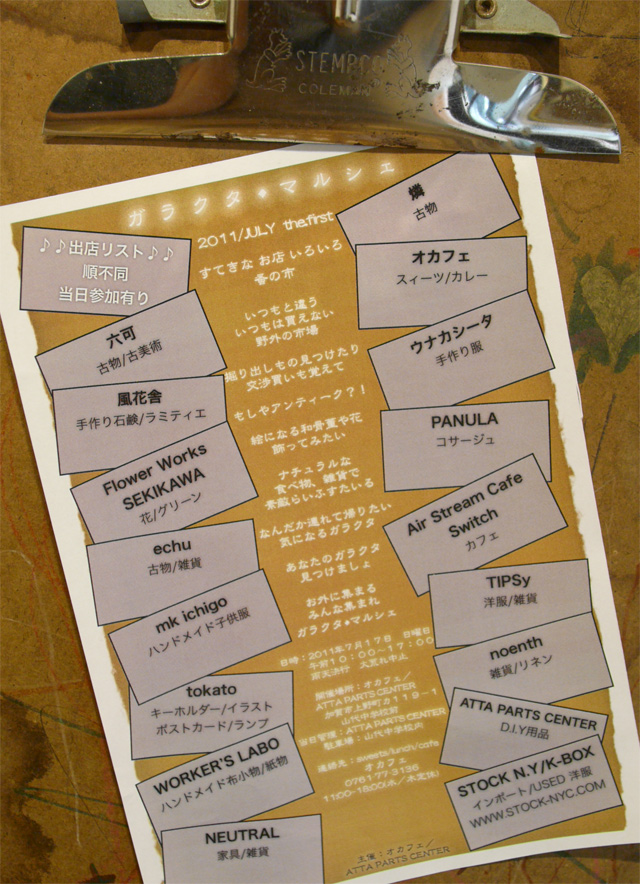 STEMPCO
COLEMAN
ガラクタ◆マルシェ
2011/JULY the.first
すてきな お店 いろいろ
春の市
いつもと違う
いつもは買えない
野外の市場
掘り出しもの見つけたり
交渉買いも覚えて
もしやアンティーク?!
絵になる和骨董や花
飾ってみたい
ナチュラルな
食べ物、雑貨で
素敵らいふすたいる
なんだか連れて帰りたい
気になるガラクタ
あなたのガラクタ
見つけましょ
お外に集まる
みんな集まれ
ガラクタ◆マルシェ
日時：2011年7月17日 日曜日
午前10：00〜17：00
雨天決行 大荒れ中止
開催場所：オカフェ／
ATTA PARTS CENTER
加賀市上野町カ119－1
山代中学校前
当日管理：ATTA PARTS CENTER
駐車場：山代中学校内
連絡先：sweets/lunch/cafe
オカフェ
0761-77-3136
11:00-18:00(水／木定休)
主催：オカフェ／
ATTA PARTS CENTER
♪♪出店リスト♪♪
順不同
当日参加有り
六可
古物/古美術
風花舎
手作り石鹸/ラミティエ
Flower Works
SEKIKAWA
花/グリーン
echu
古物/雑貨
mk ichigo
ハンドメイド子供服
tokato
キーホルダー/イラスト
ポストカード/ランプ
WORKER'S LABO
ハンドメイド布小物/紙物
NEUTRAL
家具/雑貨
燐
古物
オカフェ
スィーツ/カレー
ウナカシータ
手作り服
PANULA
コサージュ
Air Stream Cafe
Switch
カフェ
TIPSy
洋服/雑貨
noenth
雑貨/リネン
ATTA PARTS CENTER
D.I.Y用品
STOCK N.Y/K-BOX
インポート/USED 洋服
WWW.STOCK-NYC.COM